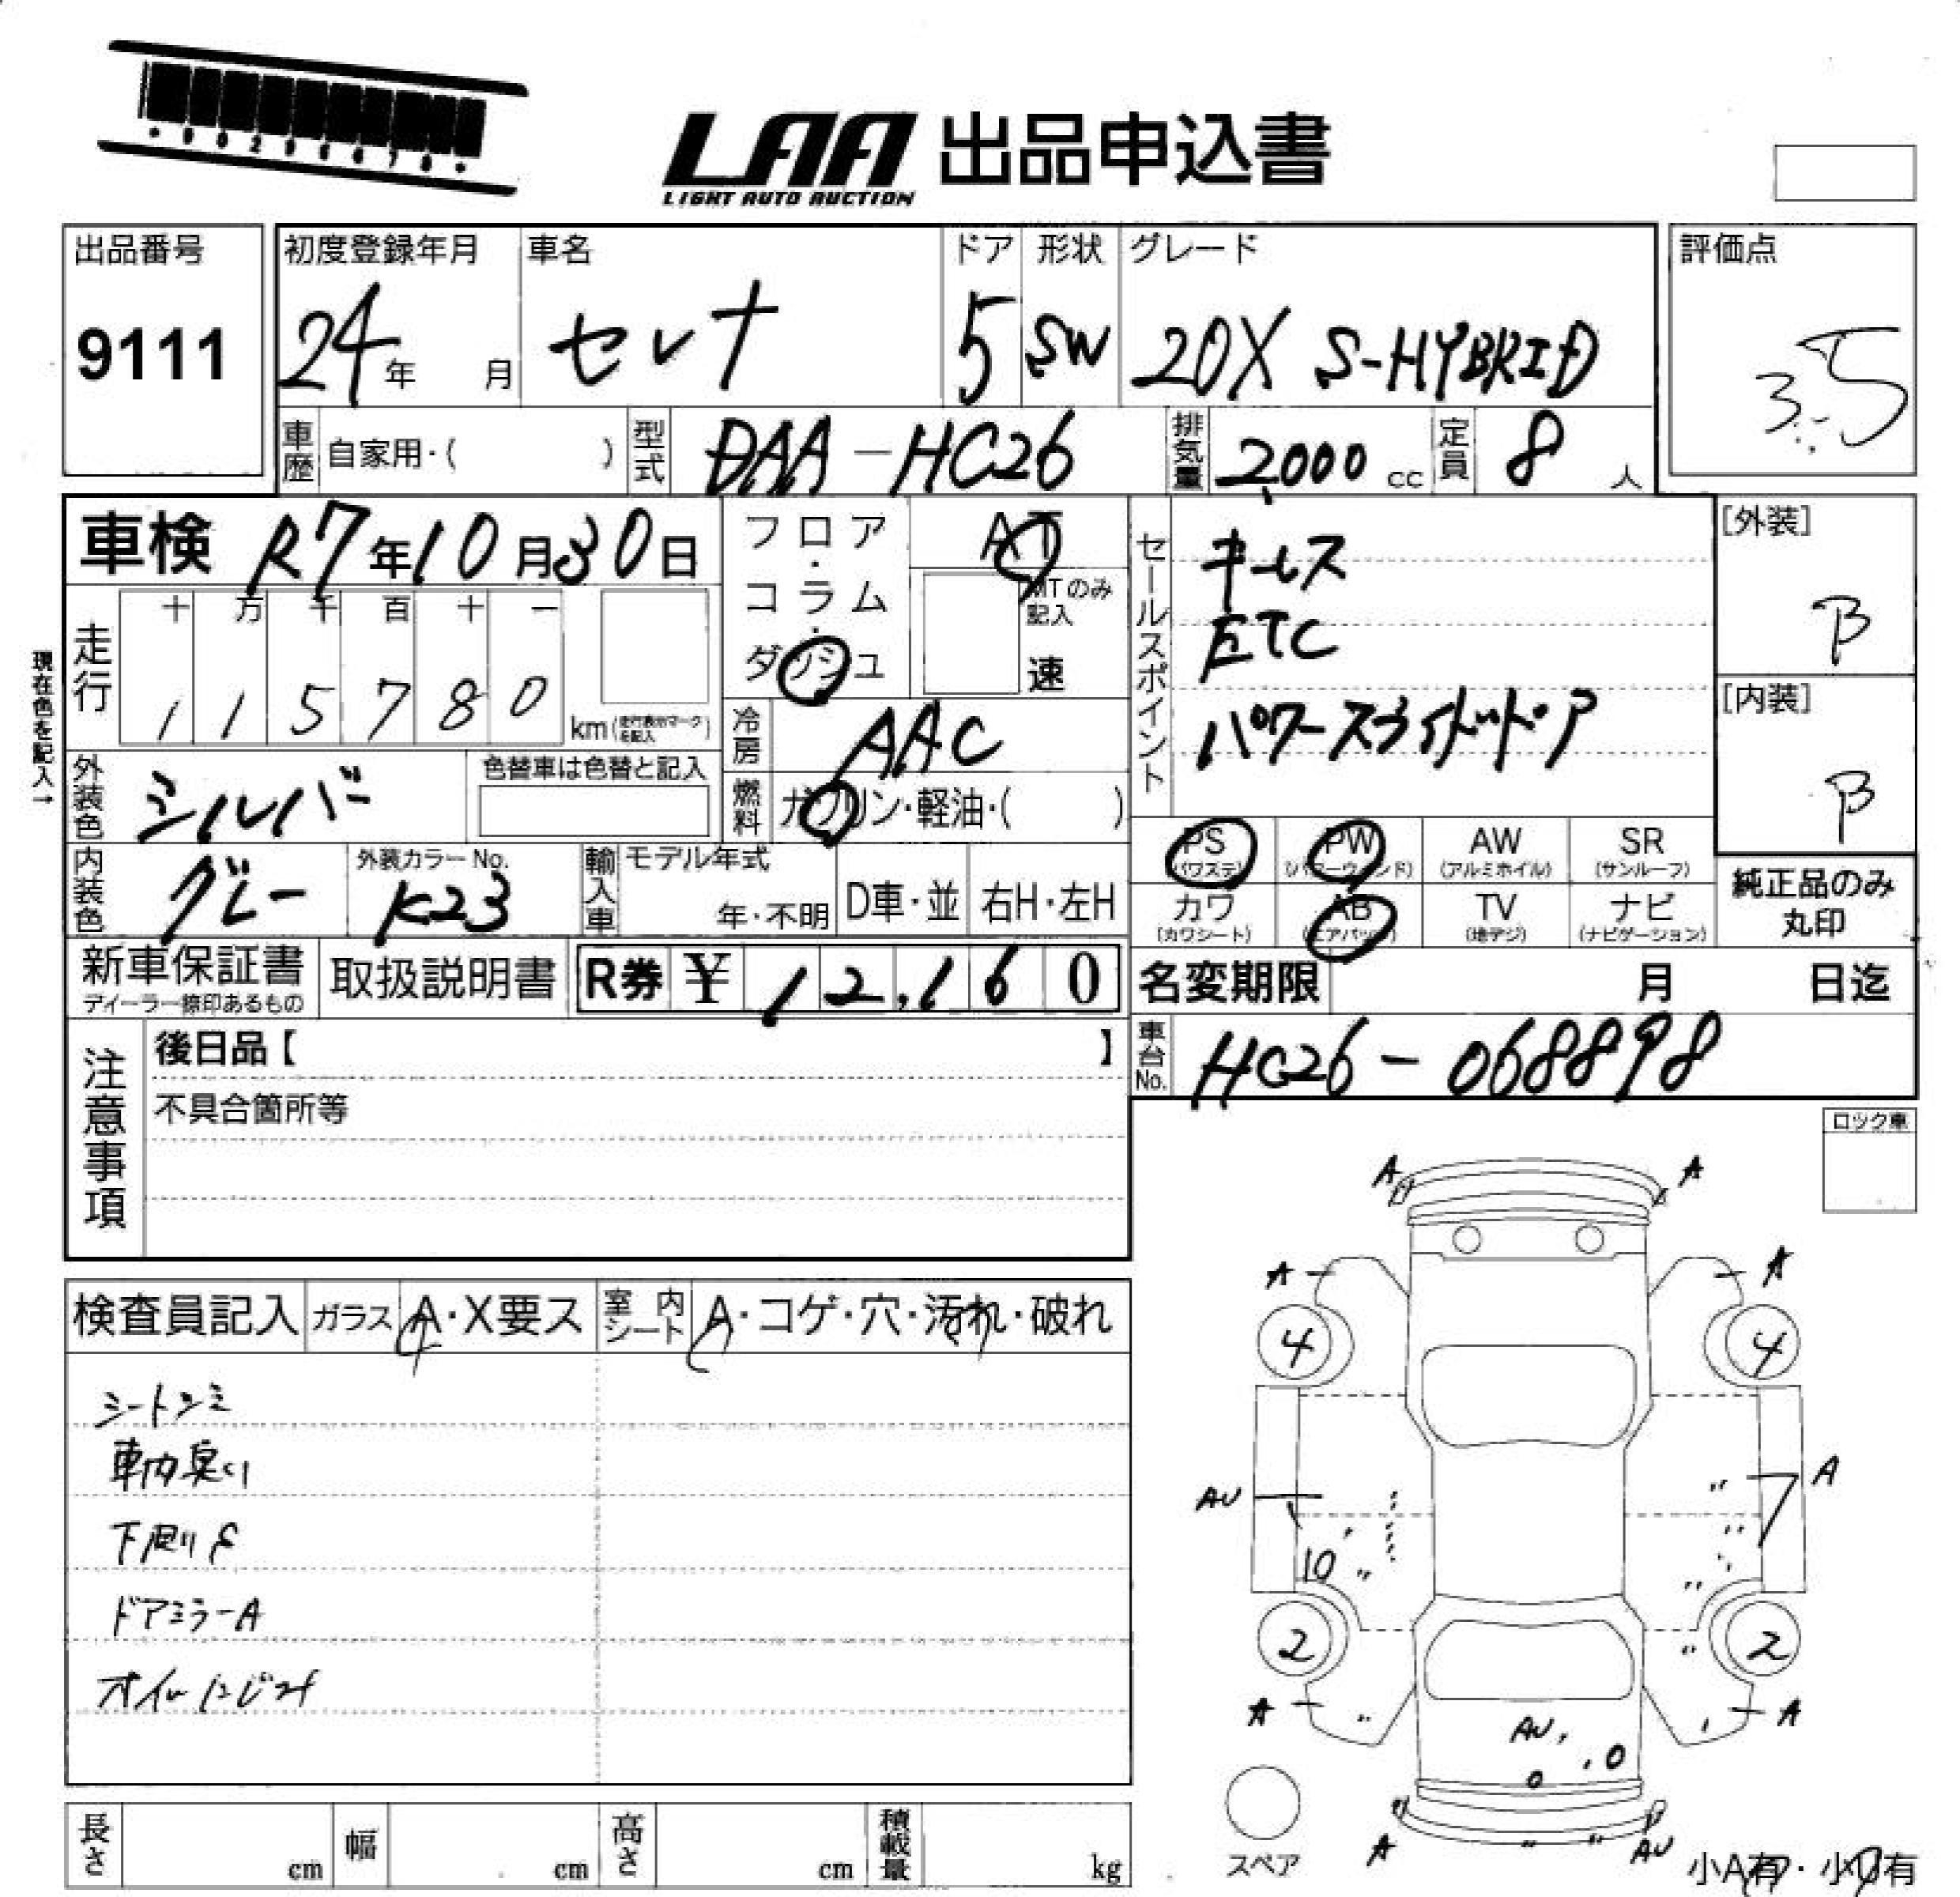 LAA 出品申込書
LIGHT AUTO AUCTION
出品番号
9111
初度登録年月
24年 月
車名
セレナ
ドア
5
形状
SW
グレード
20X S-HYBRID
評価点
3.5
車歴 自家用・( )
型式 DAA-HC26
排気量 2,000 cc
定員 8 人
車検 R7年10月30日
現在色を記入→
走行
十 万 千 百 十 一
1 1 5 7 8 0 km (走行表示マークを記入)
フロア・コラム・ダッシュ
AT
MTのみ記入
速
冷房 AAC
燃料 ガソリン・軽油・( )
セールスポイント
キーレス
ETC
パワースライドドア
[外装]
B
[内装]
B
外装色 シルバー
色替車は色替と記入
内装色 グレー
外装カラーNo.
K23
輸入車 モデル年式
年・不明
D車・並
右H・左H
PS (パワステ)
PW (パワーウィンド)
AW (アルミホイル)
SR (サンルーフ)
カワ (カワシート)
AB (エアバッグ)
TV (地デジ)
ナビ (ナビゲーション)
純正品のみ丸印
新車保証書
ディーラー捺印あるもの
取扱説明書
R券 ¥ 12,160
名変期限 月 日迄
車台No. HC26-068898
注意事項
後日品【 】
不具合箇所等
ロック車
検査員記入
ガラス A・X要ス
室内シート A・コゲ・穴・汚れ・破れ
シートシミ
車内臭い
下廻りS
ドアミラーA
オイルにじみ
A A
A A
4 4
AU A
7
10
2 2
A A
AU
A AU
スペア
小A有・小U有
長さ cm
幅 cm
高さ cm
積載量 kg